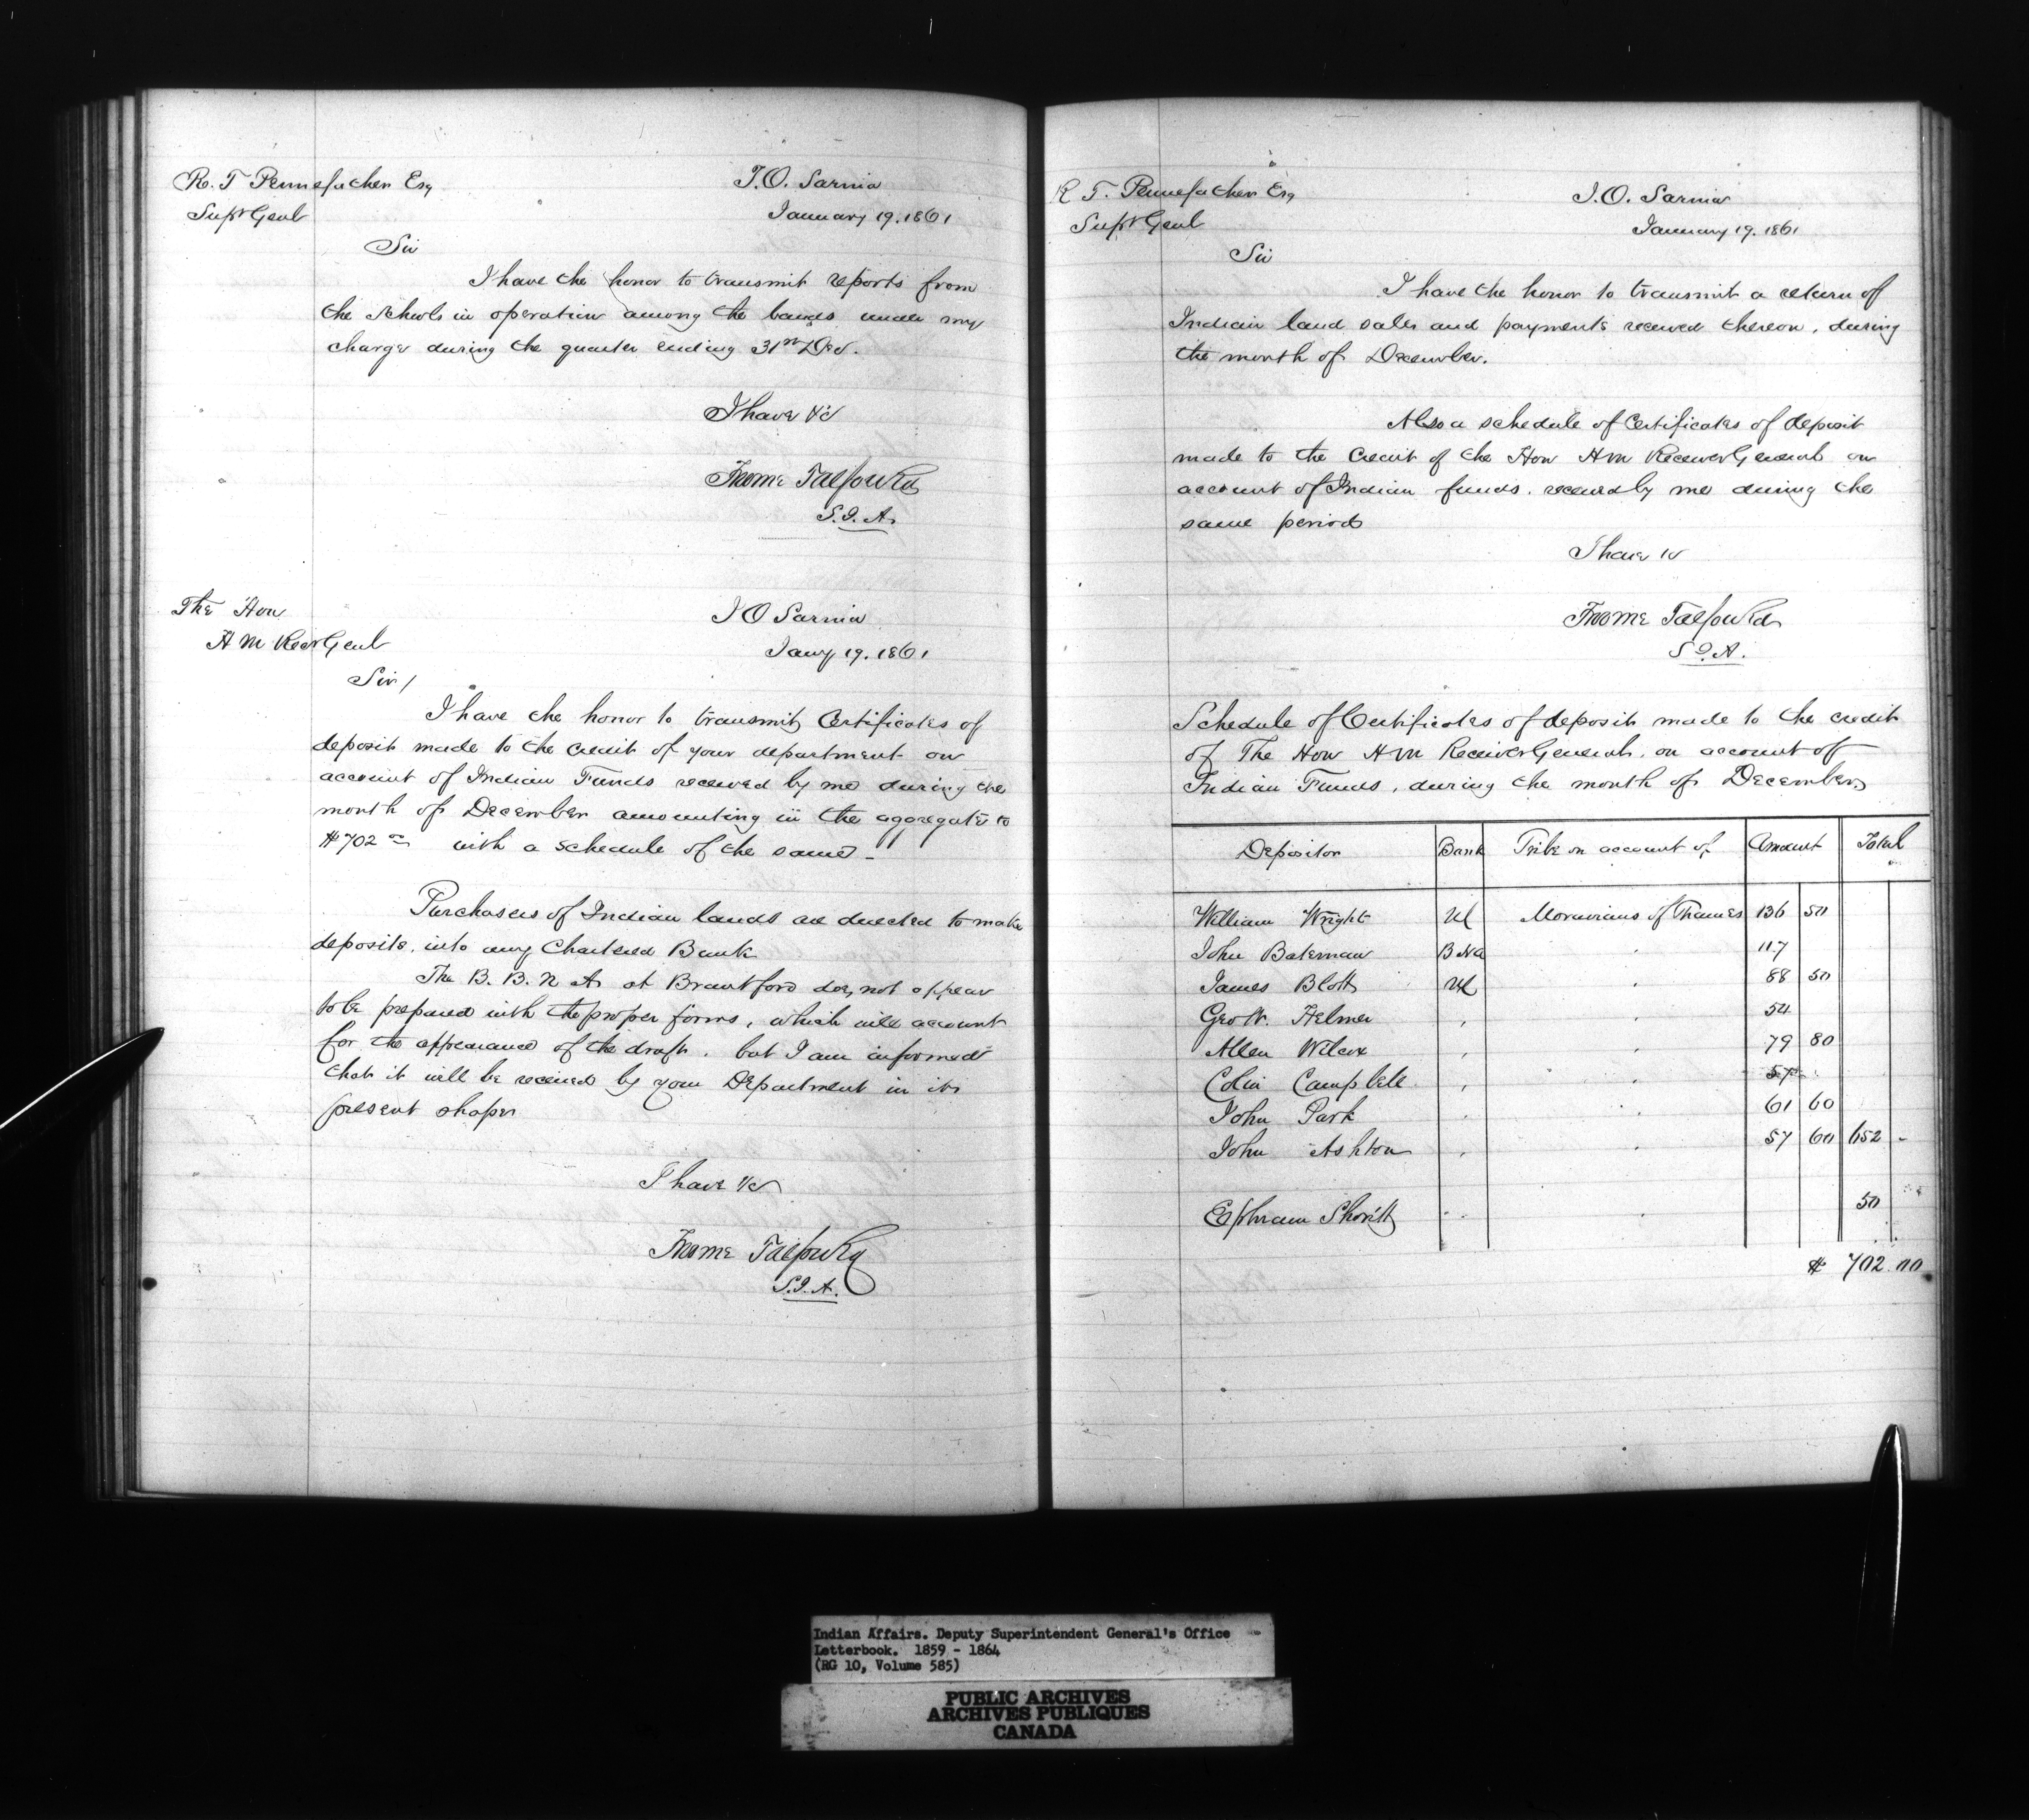 R. T Pennefather Esq
Supt Genl
I.O. Sarnia
January 19. 1861
Sir
I have the honor to transmit reports from
the schools in operation among the bands under my
charge during the quarter ending 31st Dec.
I have &c
Froome Talfourd
S.I.A.
The Hon
H M Recr Genl
I O Sarnia
Jany 19. 1861
Sir/
I have the honor to transmit Certificates of
deposit made to the credit of your department on
account of Indian Funds received by me during the
month of December amounting in the aggregate to
$702 with a schedule of the same -
Purchasers of Indian lands are directed to make
deposits, into any Chartered Bank
The B. B. N A. at Brantford does not appear
to be prepared with the proper forms, which will account
for the appearance of the draft. but I am informed
that it will be received by your Department in its
present shape
I have &c
Froome Talfourd
S.I.A.
R T. Pennefather Esq
Supt Genl
I.O. Sarnia
January 19. 1861
Sir
I have the honor to transmit a return of
Indian land sales and payments received thereon, during
the month of December.
Also a schedule of Certificates of deposit
made to the Credit of the Hon H M Receiver General on
account of Indian funds. received by me during the
same period
I have &c
Froome Talfourd
S.I.A.
Schedule of Certificates of deposit made to the credit
of The Hon H M Receiver General, on account of
Indian Funds, during the month of December
Depositor Bank Tribe on account of Amount Total
William Wright UC Moravians of Thames 136 50
John Bateman B NA " 117
James Blott UC " 88 50
Geo W. Helmer " " 54
Allen Wilcox " " 79 80
Colin Campbell " " 57
John Park " " 61 60
John Ashton " " 57 60 652 -
Ephraim 50
$ 702.00
Indian Affairs. Deputy Superintendent General's Office
Letterbook. 1859 - 1864
(RG 10, Volume 585)
PUBLIC ARCHIVES
ARCHIVES PUBLIQUES
CANADA